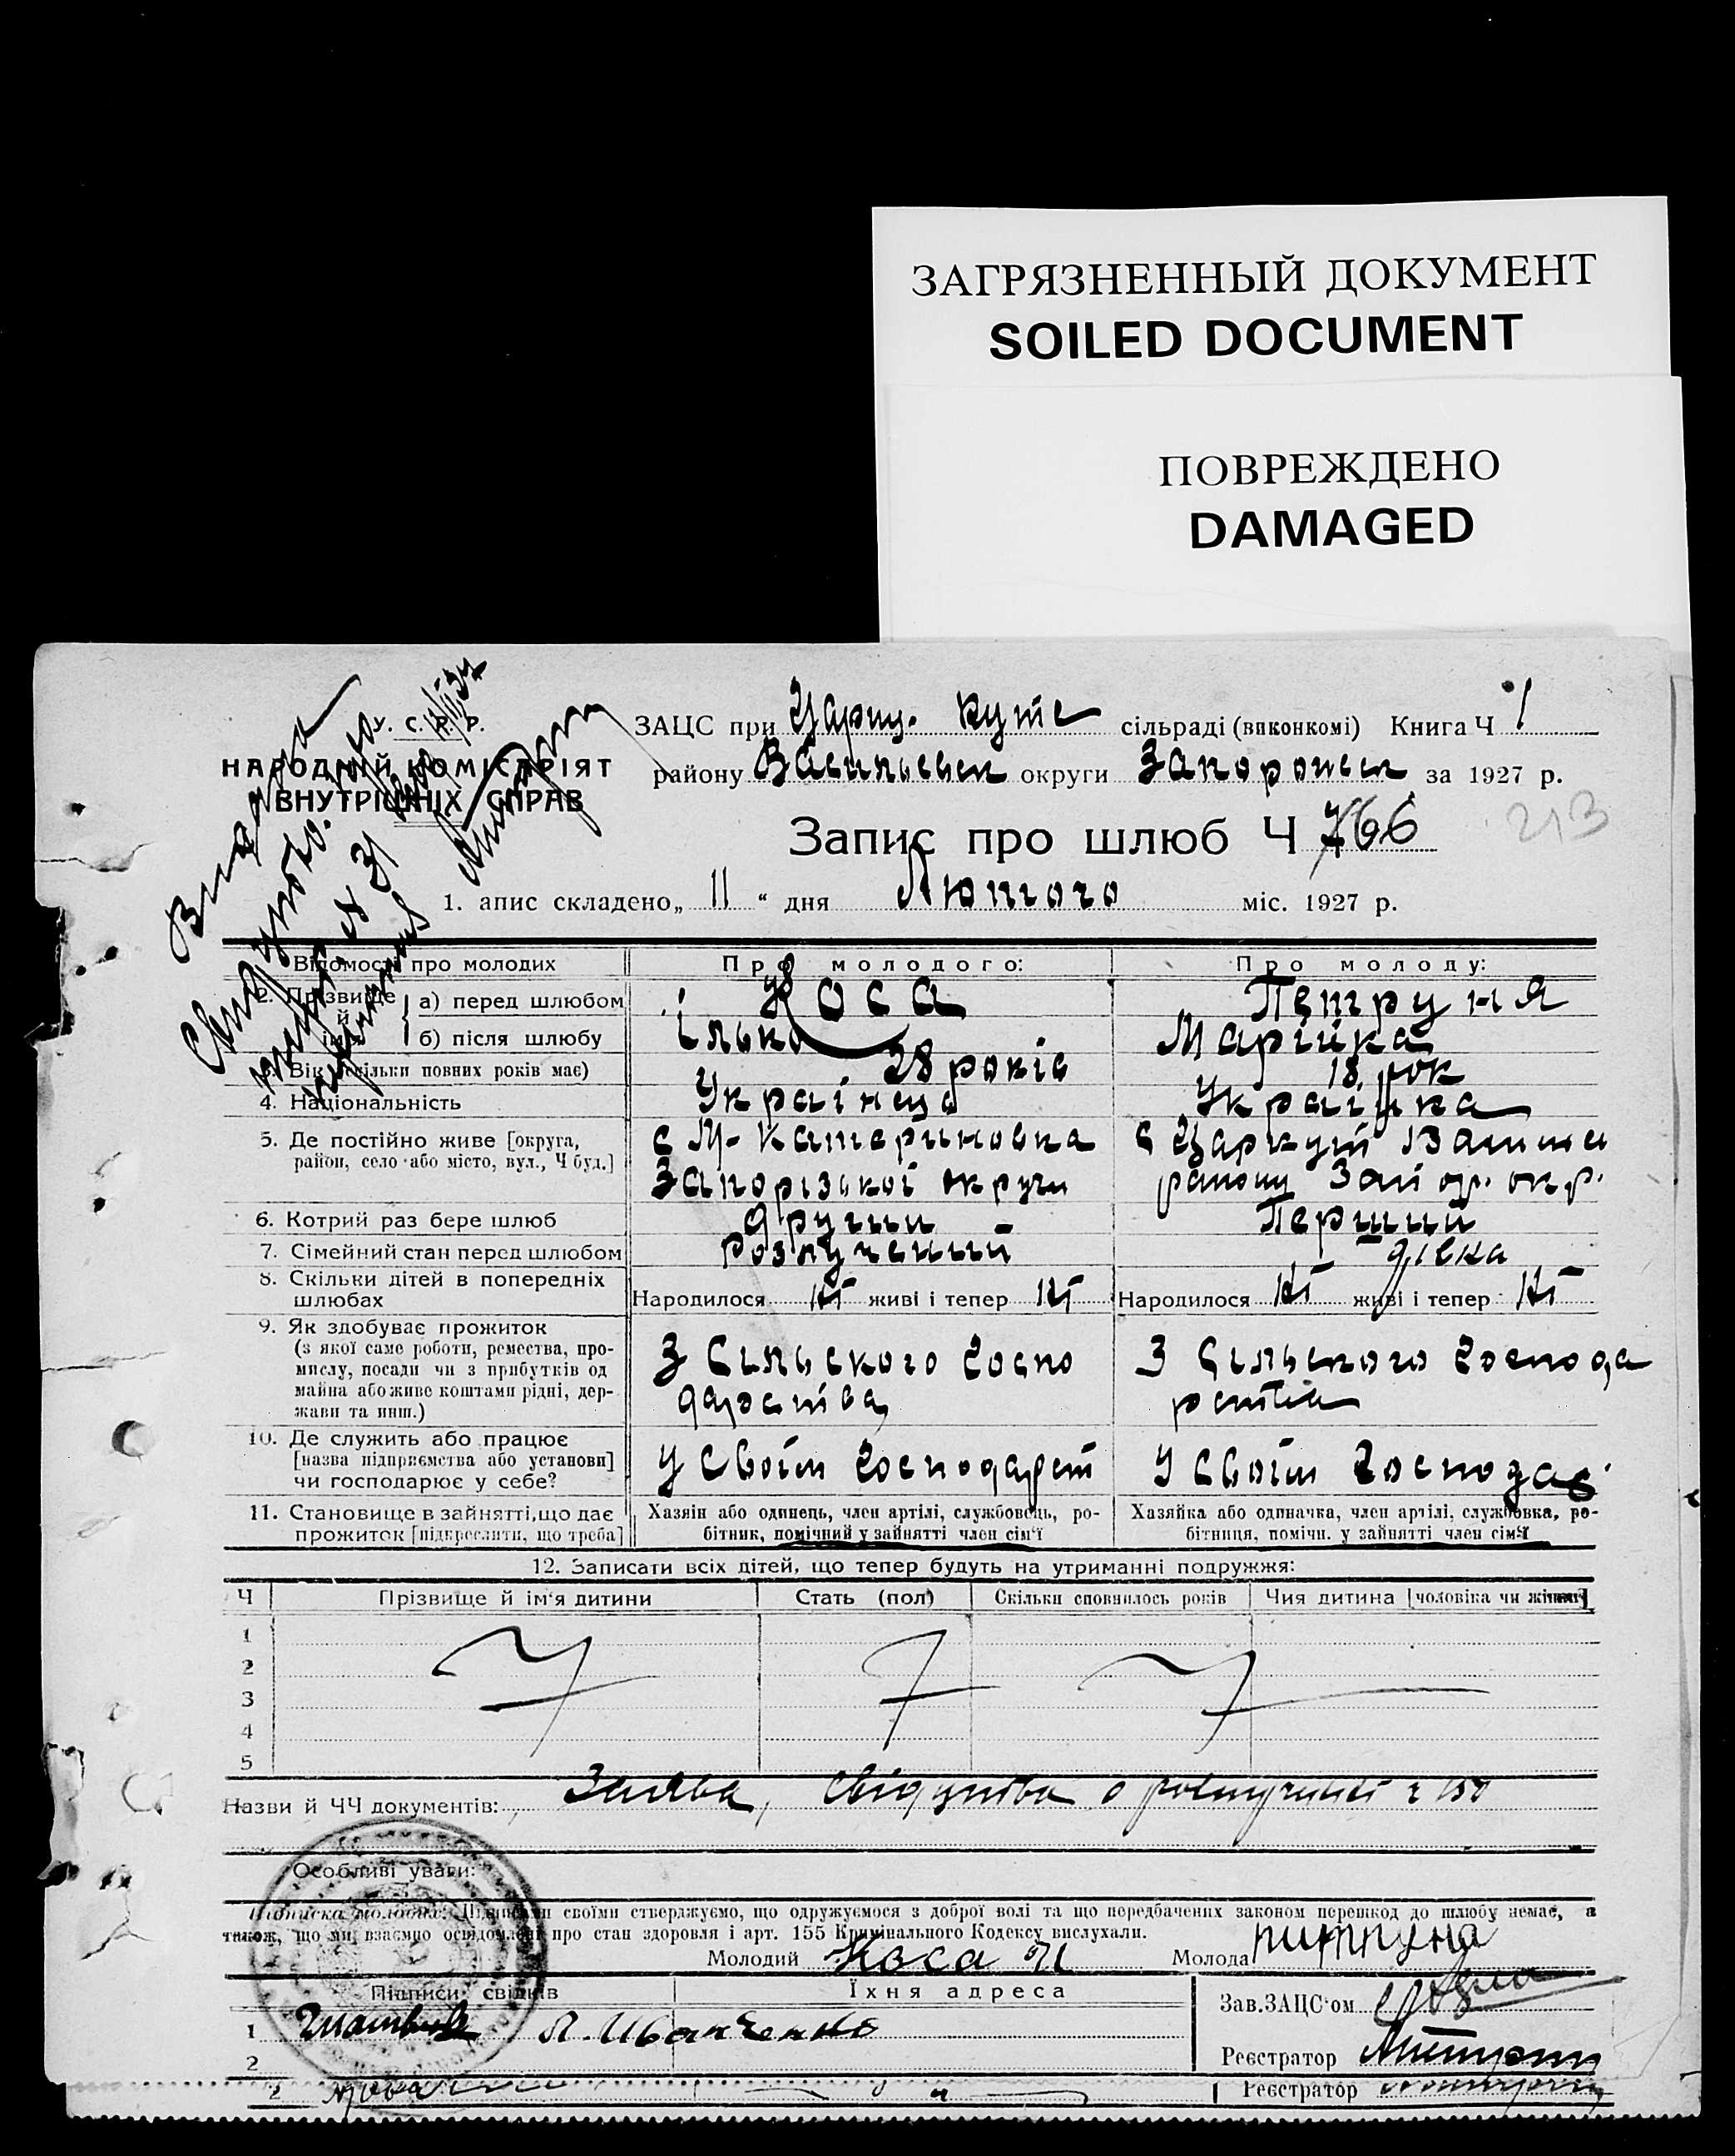 ЗАГРЯЗНЕННЫЙ ДОКУМЕНТ
SOILED DOCUMENT
ПОВРЕЖДЕНО
DAMAGED
У. С. Р. Р.
НАРОДНІЙ КОМІСАРІЯТ
ВНУТРІШНІХ СПРАВ
ЗАЦС при Цариц. Куте сільраді (виконкомі) Книга Ч 1
району округи за 1927 р.
Запис про шлюб Ч 766
213
1. апис складено „ 11 “ дня Лютого міс. 1927 р.
Видана
Відомості про молодих
Про молодого:
Про молоду:
2. Прізвище й ім'я
а) перед шлюбом
Коса
Петруня
б) після шлюбу
Ілько
Марійка
3. Вік (скільки повних років має)
28 років
18 рок
4. Національність
Українець
Українка
5. Де постійно живе [округа,
район, село або місто, вул., Ч буд.]
с М-Катериновка
Запорізької округи
с Царкут
району Запор. окр.
6. Котрий раз бере шлюб
другий
Перший
7. Сімейний стан перед шлюбом
розлучений
дівка
8. Скільки дітей в попередніх
шлюбах
Народилося ні живі і тепер ні
Народилося ні живі і тепер ні
9. Як здобуває прожиток
(з якої саме роботи, ремества, про-
мислу, посади чи з прибутків од
майна або живе коштами рідні, дер-
жави та инш.)
З Сильского Госпо
дарства
З Сильского Господа
рства
10. Де служить або працює
[назва підприємства або установи]
чи господарює у себе?
У своїм Господарст
У своїм Господар
11. Становище в зайнятті, що дає
прожиток [підкреслити, що треба]
Хазяін або одинець, член артілі, службовець, ро-
бітник, помічний у зайнятті член сім'ї
Хазяйка або одиначка, член артілі, службовка, ро-
бітниця, помічн. у зайнятті член сім'ї
12. Записати всіх дітей, що тепер будуть на утриманні подружжя:
Ч
Прізвище й ім'я дитини
Стать (пол)
Скільки сповнилось років
Чия дитина [чоловіка чи жінки]
1
2
3
4
5
Назви й ЧЧ документів: Заява, свідуцтва о
Особливі уваги:
Підписка молодих: Підписами своїми стверджуємо, що одружуємося з доброї волі та що передбачених законом перешкод до шлюбу немає, а
також, що ми взаємно освідомлені про стан здоровля і арт. 155 Кримінального Кодексу вислухали.
Молодий Коса И
Молода
Підписи свідків
Їхня адреса
Зав.ЗАЦС'ом
1 Л. Иванченко
2
Реєстратор
2
Реєстратор